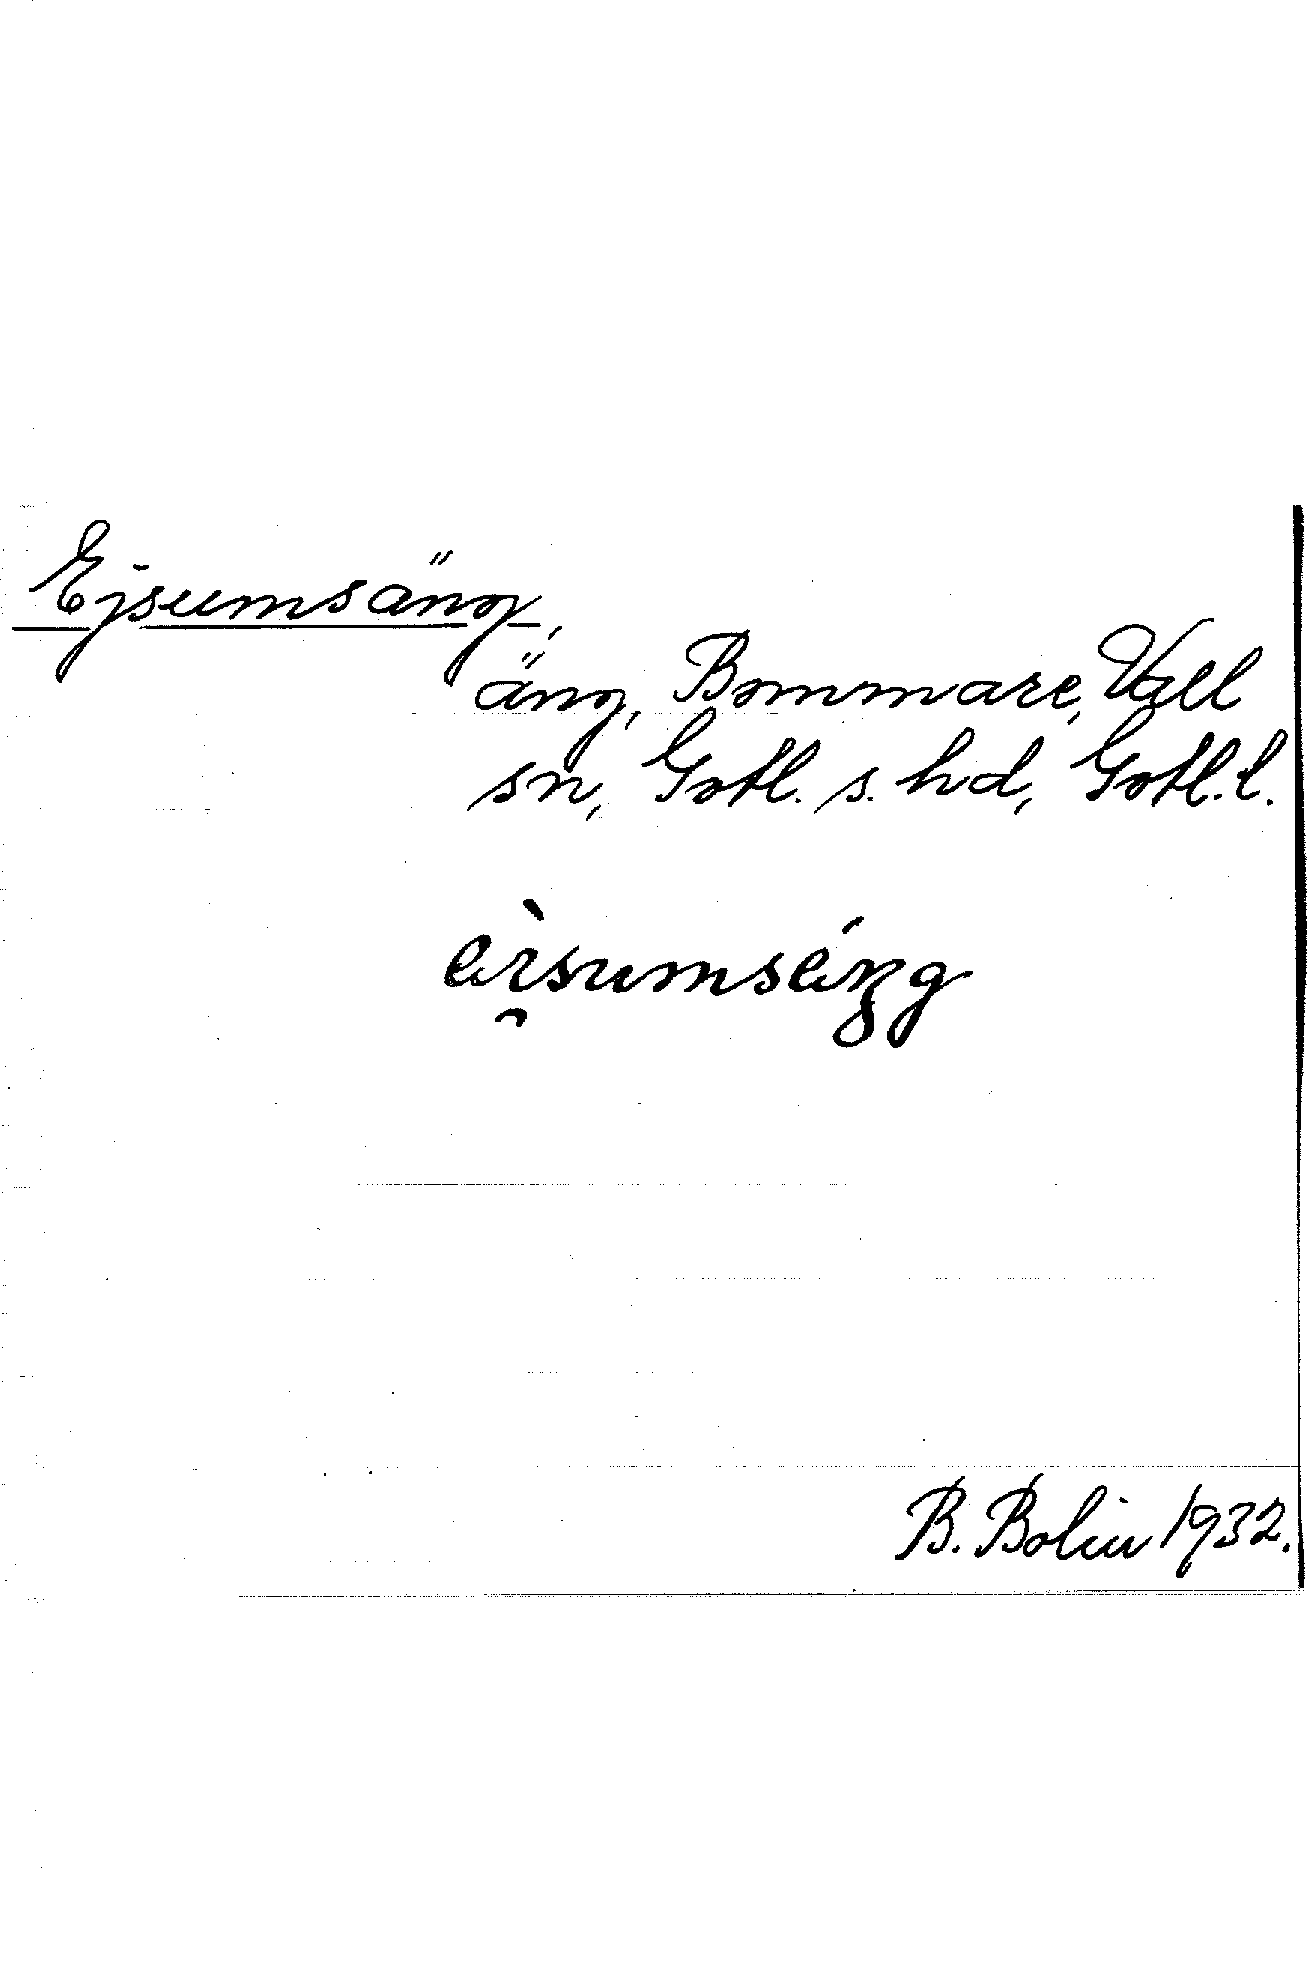 Ejsumsäng,
äng, Bommare, Vall
sn, Gotl. s. hd, Gotl. l.
èi̯sumséŋg
B. Bolin 1932.